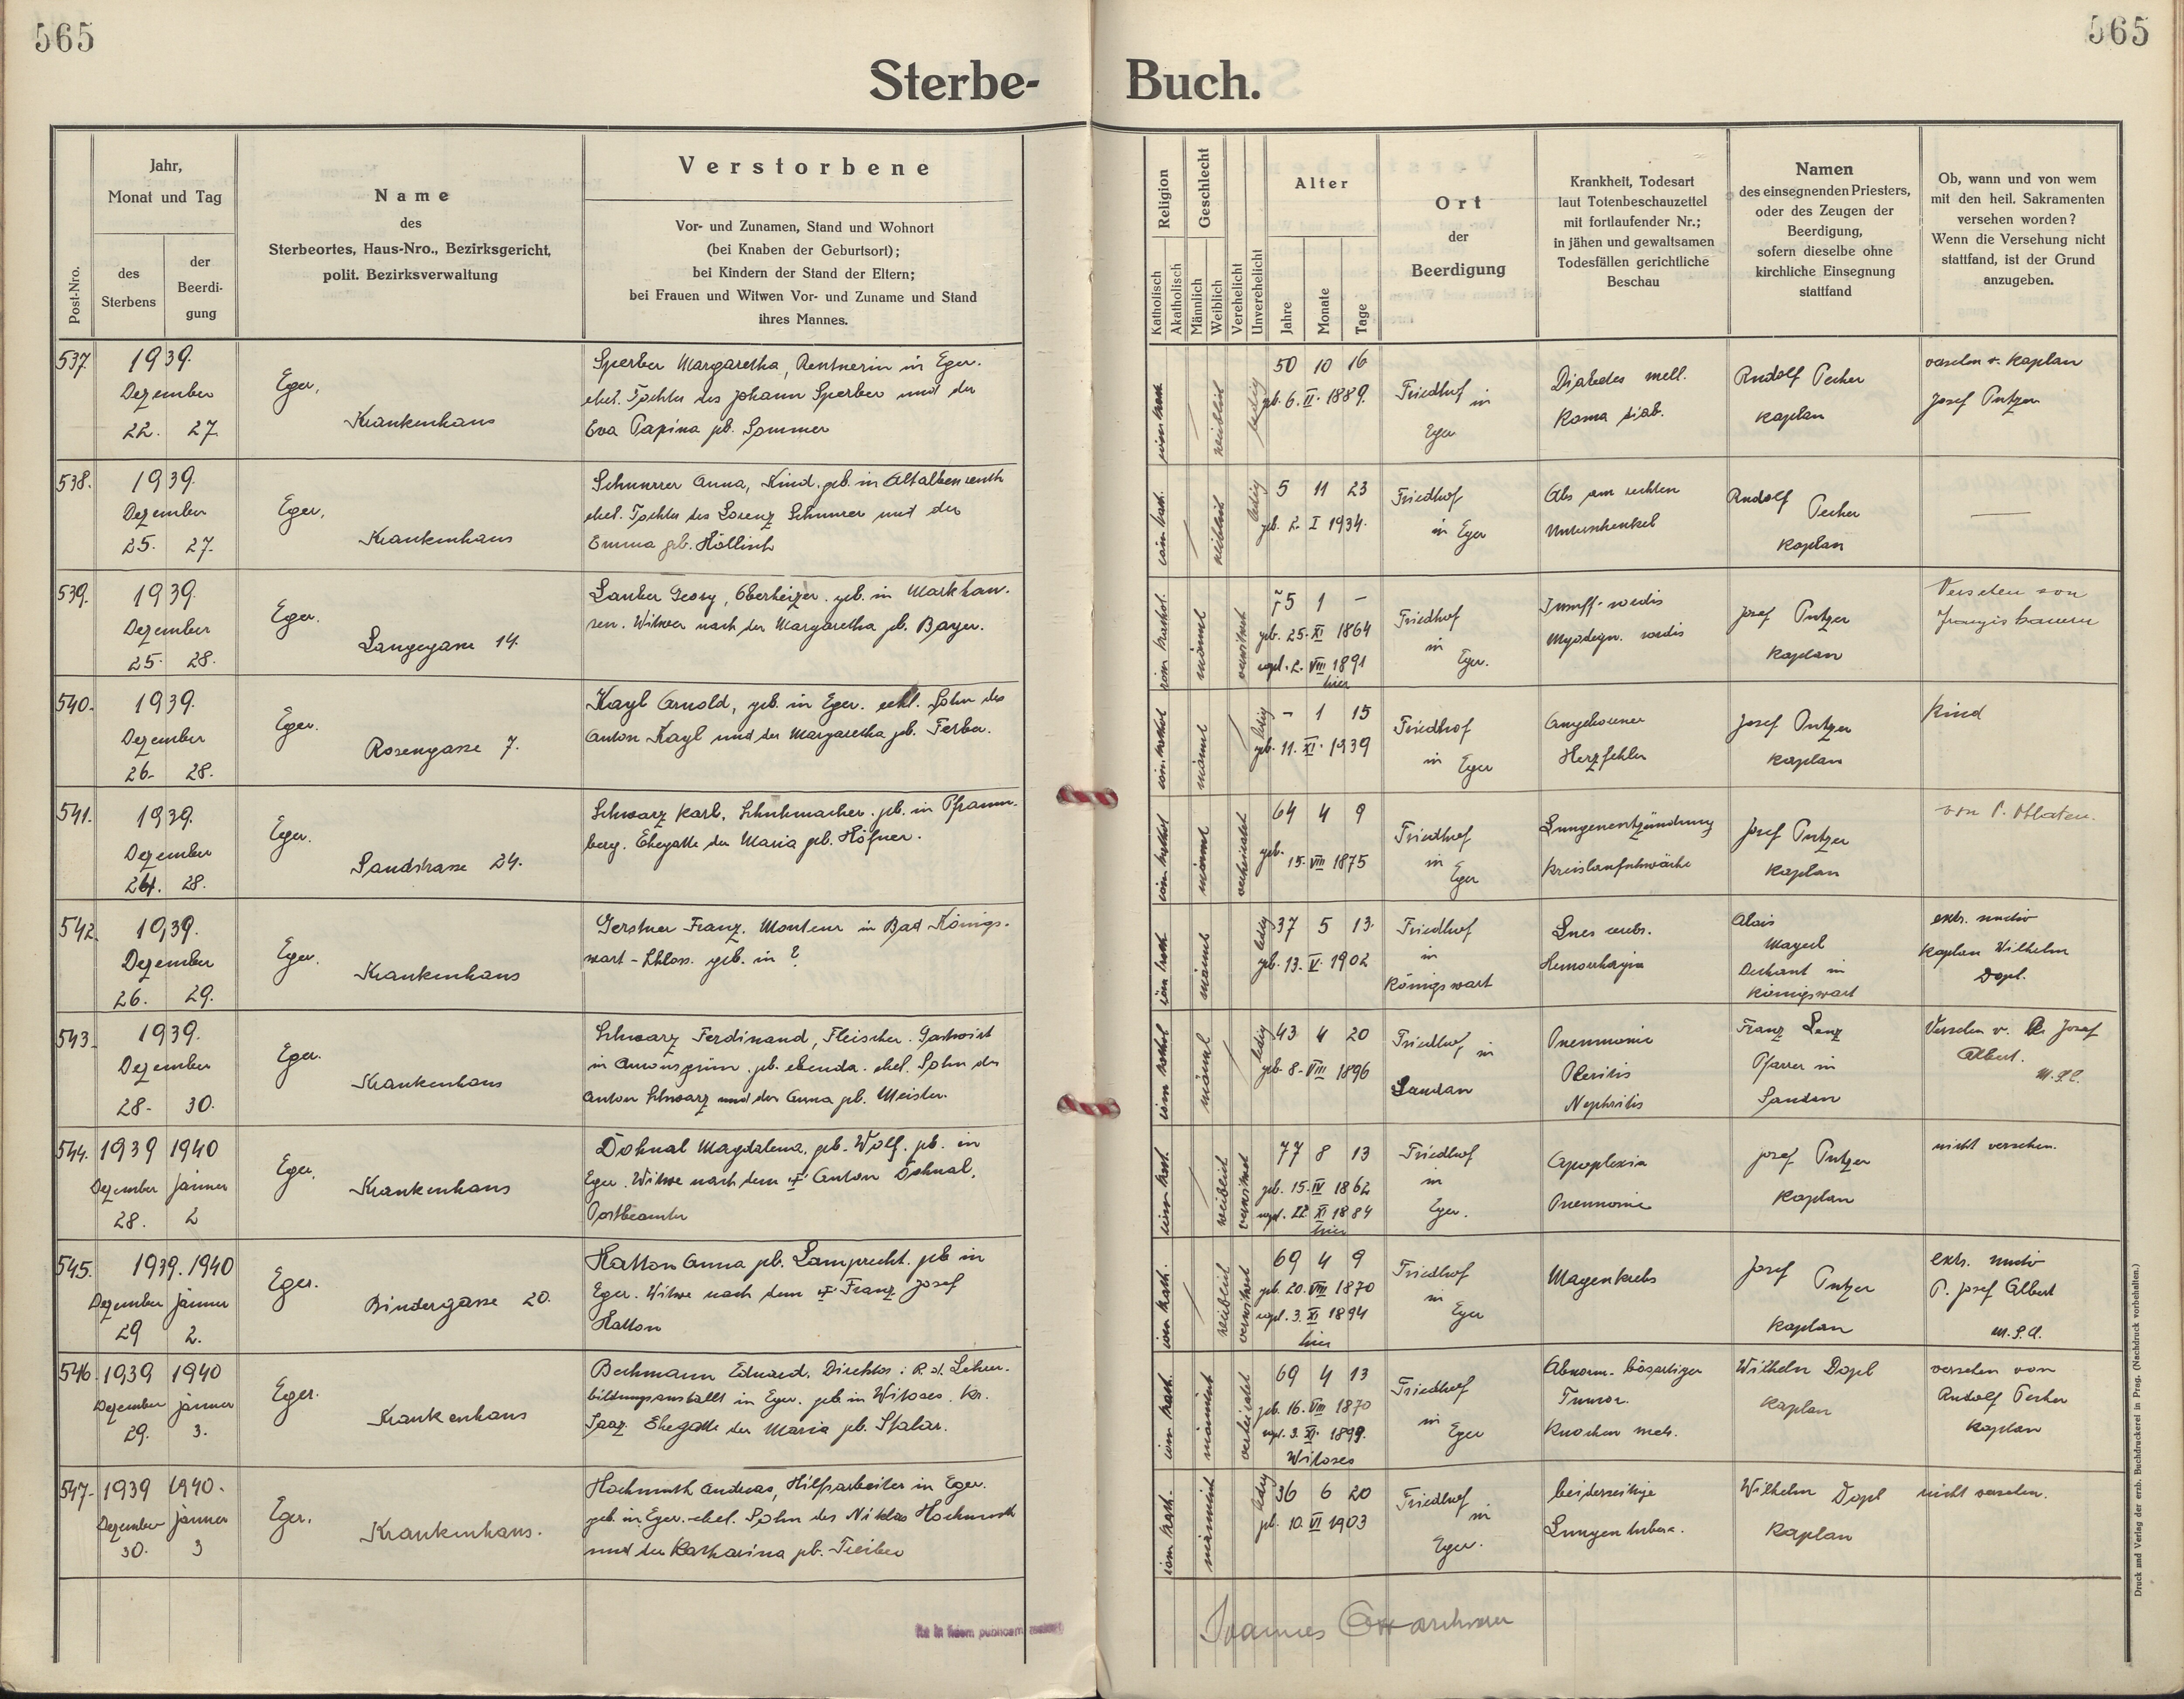 565
565
Sterbe-
Buch.
Post-Nro.
Jahr,
Monat und Tag
des
Sterbens
der
Beerdi-
gung
Name
des
Sterbeortes, Haus-Nro., Bezirksgericht,
polit. Bezirksverwaltung
Verstorbene
Vor- und Zunamen, Stand und Wohnort
(bei Knaben der Geburtsort);
bei Kindern der Stand der Eltern;
bei Frauen und Witwen Vor- und Zuname und Stand
ihres Mannes.
Religion
Katholisch
Akatholisch
Geschlecht
Männlich
Weiblich
Verehelicht
Unverehelicht
Alter
Jahre
Monate
Tage
Ort
der
Beerdigung
Krankheit, Todesart
laut Totenbeschauzettel
mit fortlaufender Nr.;
in jähen und gewaltsamen
Todesfällen gerichtliche
Beschau
Namen
des einsegnenden Priesters,
oder des Zeugen der
Beerdigung,
sofern dieselbe ohne
kirchliche Einsegnung
stattfand
Ob, wann und von wem
mit den heil. Sakramenten
versehen worden?
Wenn die Versehung nicht
stattfand, ist der Grund
anzugeben.
537
1939.
Dezember
22. 27.
Eger,
Krankenhaus
Sperber Margaretha, Rentnerin in Eger.
ehel. Tochter des Johann Sperber und der
Eva Papina gb. Sommer
röm. kath.
weiblich
ledig
50 10 16
gb. 6. II. 1889.
Friedhof in
Eger
Diabetes mell.
Koma diab.
Rudolf Pecher
Kaplan
versehen v. Kaplan
Josef Putzer
538.
1939.
Dezember
25. 27.
Eger,
Krankenhaus
Schnurrer Anna, Kind. geb. in Altalbenreuth
ehel. Tochter des Lorenz Schnurrer und der
Emma geb. Höllisch
röm. kath.
weiblich
ledig
5 11 23
geb. 2. I 1934.
Friedhof
in Eger
am rechten
Unterschenkel
Rudolf
Pecher
Kaplan
539.
1939.
Dezember
25. 28.
Eger.
Langegasse 14.
Georg, Oberheizer. geb. in Markhau-
sen. Witwer nach der Margaretha gb. Bayer.
männl
verwitwet
75 1 -
geb. 25. XI 1864
copl. 2. VIII 1891
hier
Friedhof
in
Eger.
Insuff. cordis
Myodegn. cordis
Josef Putzer
Kaplan
Versehen von
540.
1939.
Dezember
26. 28.
Eger.
Rosengasse 7.
Kayl Arnold, geb. in Eger. ehl. Sohn des
Anton Kayl und der Margaretha gb. Ferber.
männl
ledig
- 1 15
geb. 11. XI. 1939
Friedhof
in Eger
Angeborener
Herzfehler
Josef Putzer
Kaplan
Kind
541.
1939.
Dezember
24. 28.
Eger.
Sandstrasse 24.
Schwarz Karl, Schuhmacher. gb. in Pfraum-
berg. Ehegatte der Maria gb. Höfner.
männl
verheiratet
64 4 9
geb.
15. VIII 1875
Friedhof
in
Eger
Lungenentzündung
Kreislaufschwäche
Josef Putzer
Kaplan
von P.
542.
1939.
Dezember
26. 29.
Eger.
Krankenhaus
Gerstner Franz. Monteur in Bad Königs-
wart-Schloss. geb. in ?
röm. kath.
männl
ledig
37 5 13.
gb. 13. V. 1902
Friedhof
in
Königswart
Lues cerebr.
Hemorrhagia
Alois
Mayerl
Dechant in
Königswart
extr. unctio
Kaplan Wilhelm
Dopl.
543.
1939.
Dezember
28. 30.
Eger.
Krankenhaus
Schwarz Ferdinand, Fleischer. Gastwirt
in Amonsgrün. gb. ebenda. ehel. Sohn des
Anton Schwarz und der Anna gb. Meister.
männl
ledig
43 4 20
geb. 8. VIII 1896
Friedhof in
Sandau
Pneumonie
Pleuritis
Nephritis
Franz Lenz
Pfarrer in
Sandau
Versehen v. P. Josef
Albert.
544.
1939 1940
Dezember Jänner
28. 2
Eger.
Krankenhaus
Dohnal Magdalena, geb. Wolf. gb. in
Eger. Witwe nach dem Anton Dohnal,
Postbeamter
röm. kath.
weiblich
verwitwet
77 8 13
geb. 15. IV 1862
copl. 22 XI 1884
hier
Friedhof
in
Eger.
Apoplexia
Pneumonie
Josef Putzer
Kaplan
nicht versehen.
545.
1939. 1940
Dezember Jänner
29 2.
Eger.
Bindergasse 20.
Hatton Anna gb. Lamprecht. gb in
Eger. Witwe nach dem Franz Josef
Hatton
röm. kath.
weiblich
verwitwet
69 4 9
gb. 20. VIII 1870
copl. 3. XI 1894
hier
Friedhof
in
Eger
Magenkrebs
Josef
Putzer
Kaplan
extr. unctio
P. Josef Albert
546.
1939 1940
Dezember Jänner
29. 3.
Eger.
Krankenhaus
Bachmann Eduard, Direktor i. R. d. Lehrer-
bildungsanstalt in Eger. geb. in Witoses. Kr.
Saaz. Ehegatte der Maria gb. Stalar.
röm. kath.
männlich
verheiratet
69 4 13
geb. 16. VIII 1870
copl. 3. XI. 1899.
Witoses
Friedhof
in
Eger
bösartiger
Tumor.
Knochen
Wilhelm Dopl
Kaplan
versehen von
Rudolf Pecher
Kaplan
547.
1939 1940.
Dezember Jänner
30. 3
Eger.
Krankenhaus.
Hochmuth Andreas, Hilfsarbeiter in Eger.
geb. in Eger. ehel. Sohn des Niklas Hochmuth
und der Katharina gb. Treiber
röm. kath.
männlich
ledig
36 6 20
gb. 10. VI 1903
Friedhof in
Eger.
beiderseitige
Lungentuberk.
Wilhelm Dopl
Kaplan
nicht versehen.
Joannes
Ita in fidem publicam
Druck und Verlag der erzb. Buchdruckerei in Prag. (Nachdruck vorbehalten.)